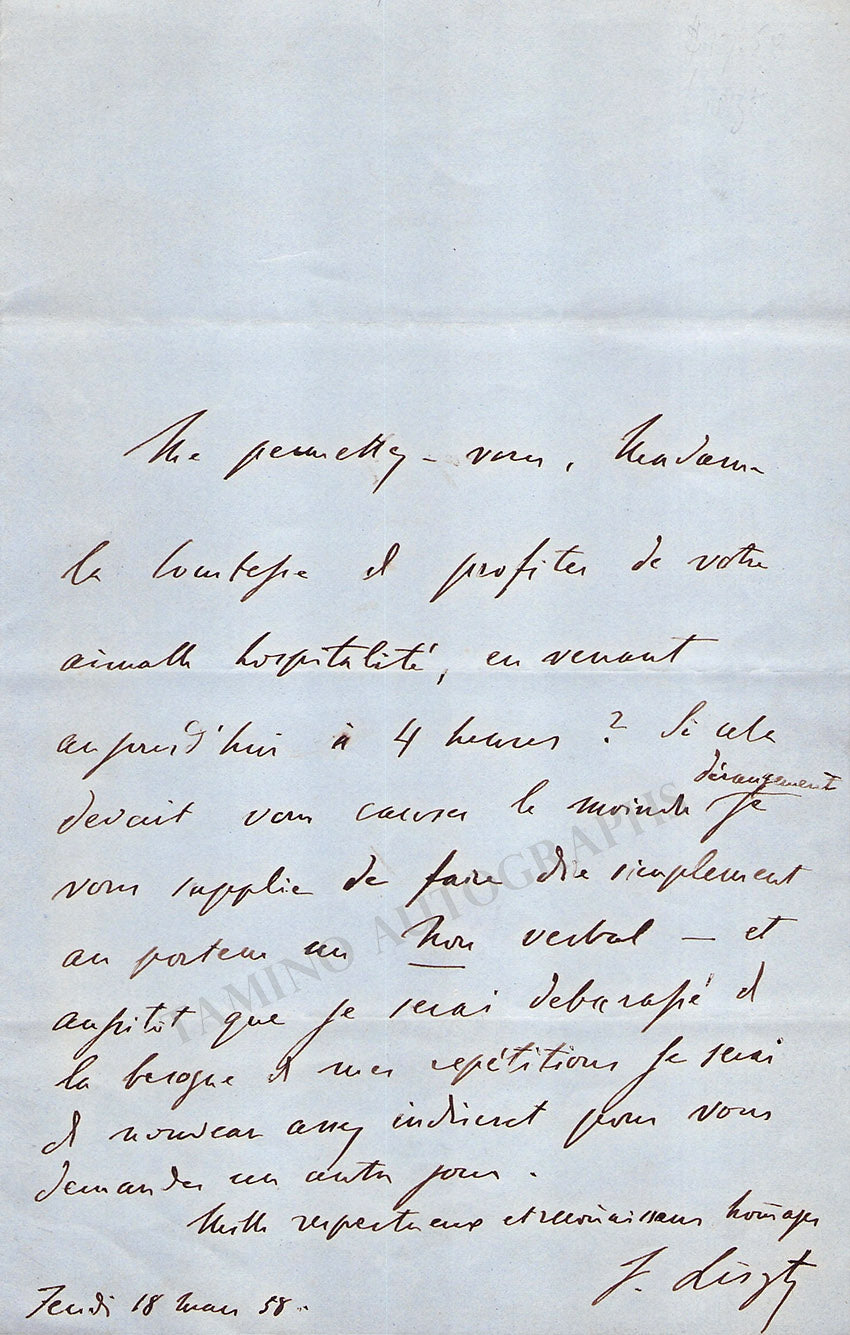 Me permettez-vous, Madame
la Comtesse de profiter de votre
aimable hospitalité, en venant
aujourd'hui à 4 heures ? Si cela
dérangement
devait vous causer le moindre je
vous supplie de faire dire simplement
au porteur un Non verbal — et
aussitôt que je serai debarassé de
la besogne de mes repétitions je serai
de nouveau assez indiscret pour vous
demander un autre jour.
Mille respectueux et reconnaissans hommages
F. Liszt
Jeudi 18 Mars 58.
TAMINO AUTOGRAPHS